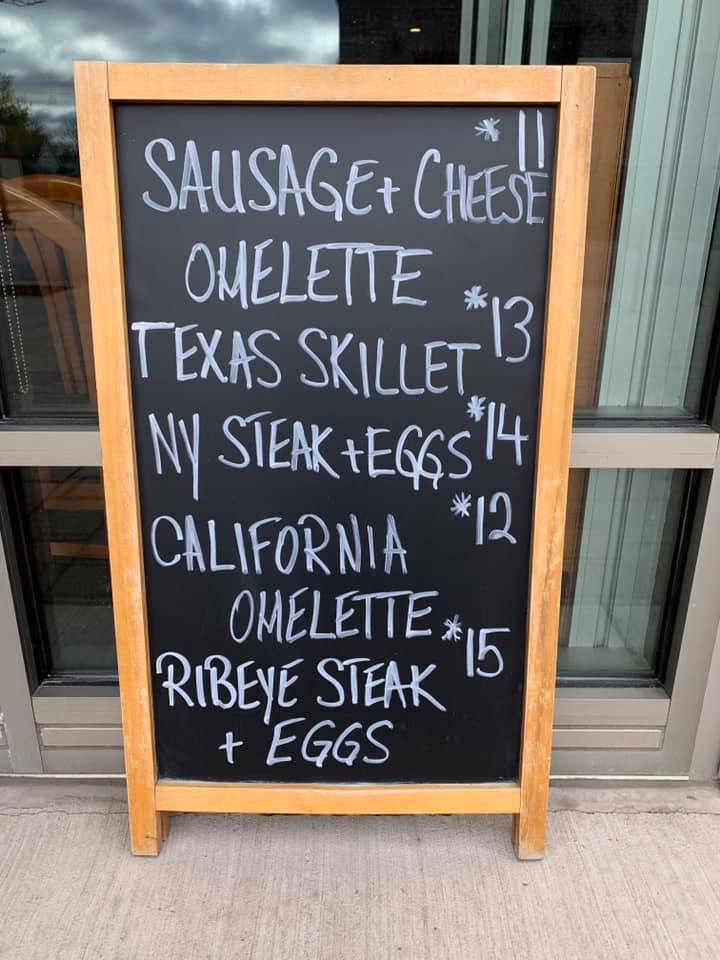 *11
SAUSAGE + CHEESE
OMELETTE
*13
TEXAS SKILLET
*14
NY STEAK + EGGS
*12
CALIFORNIA
OMELETTE
*15
RIBEYE STEAK
+ EGGS